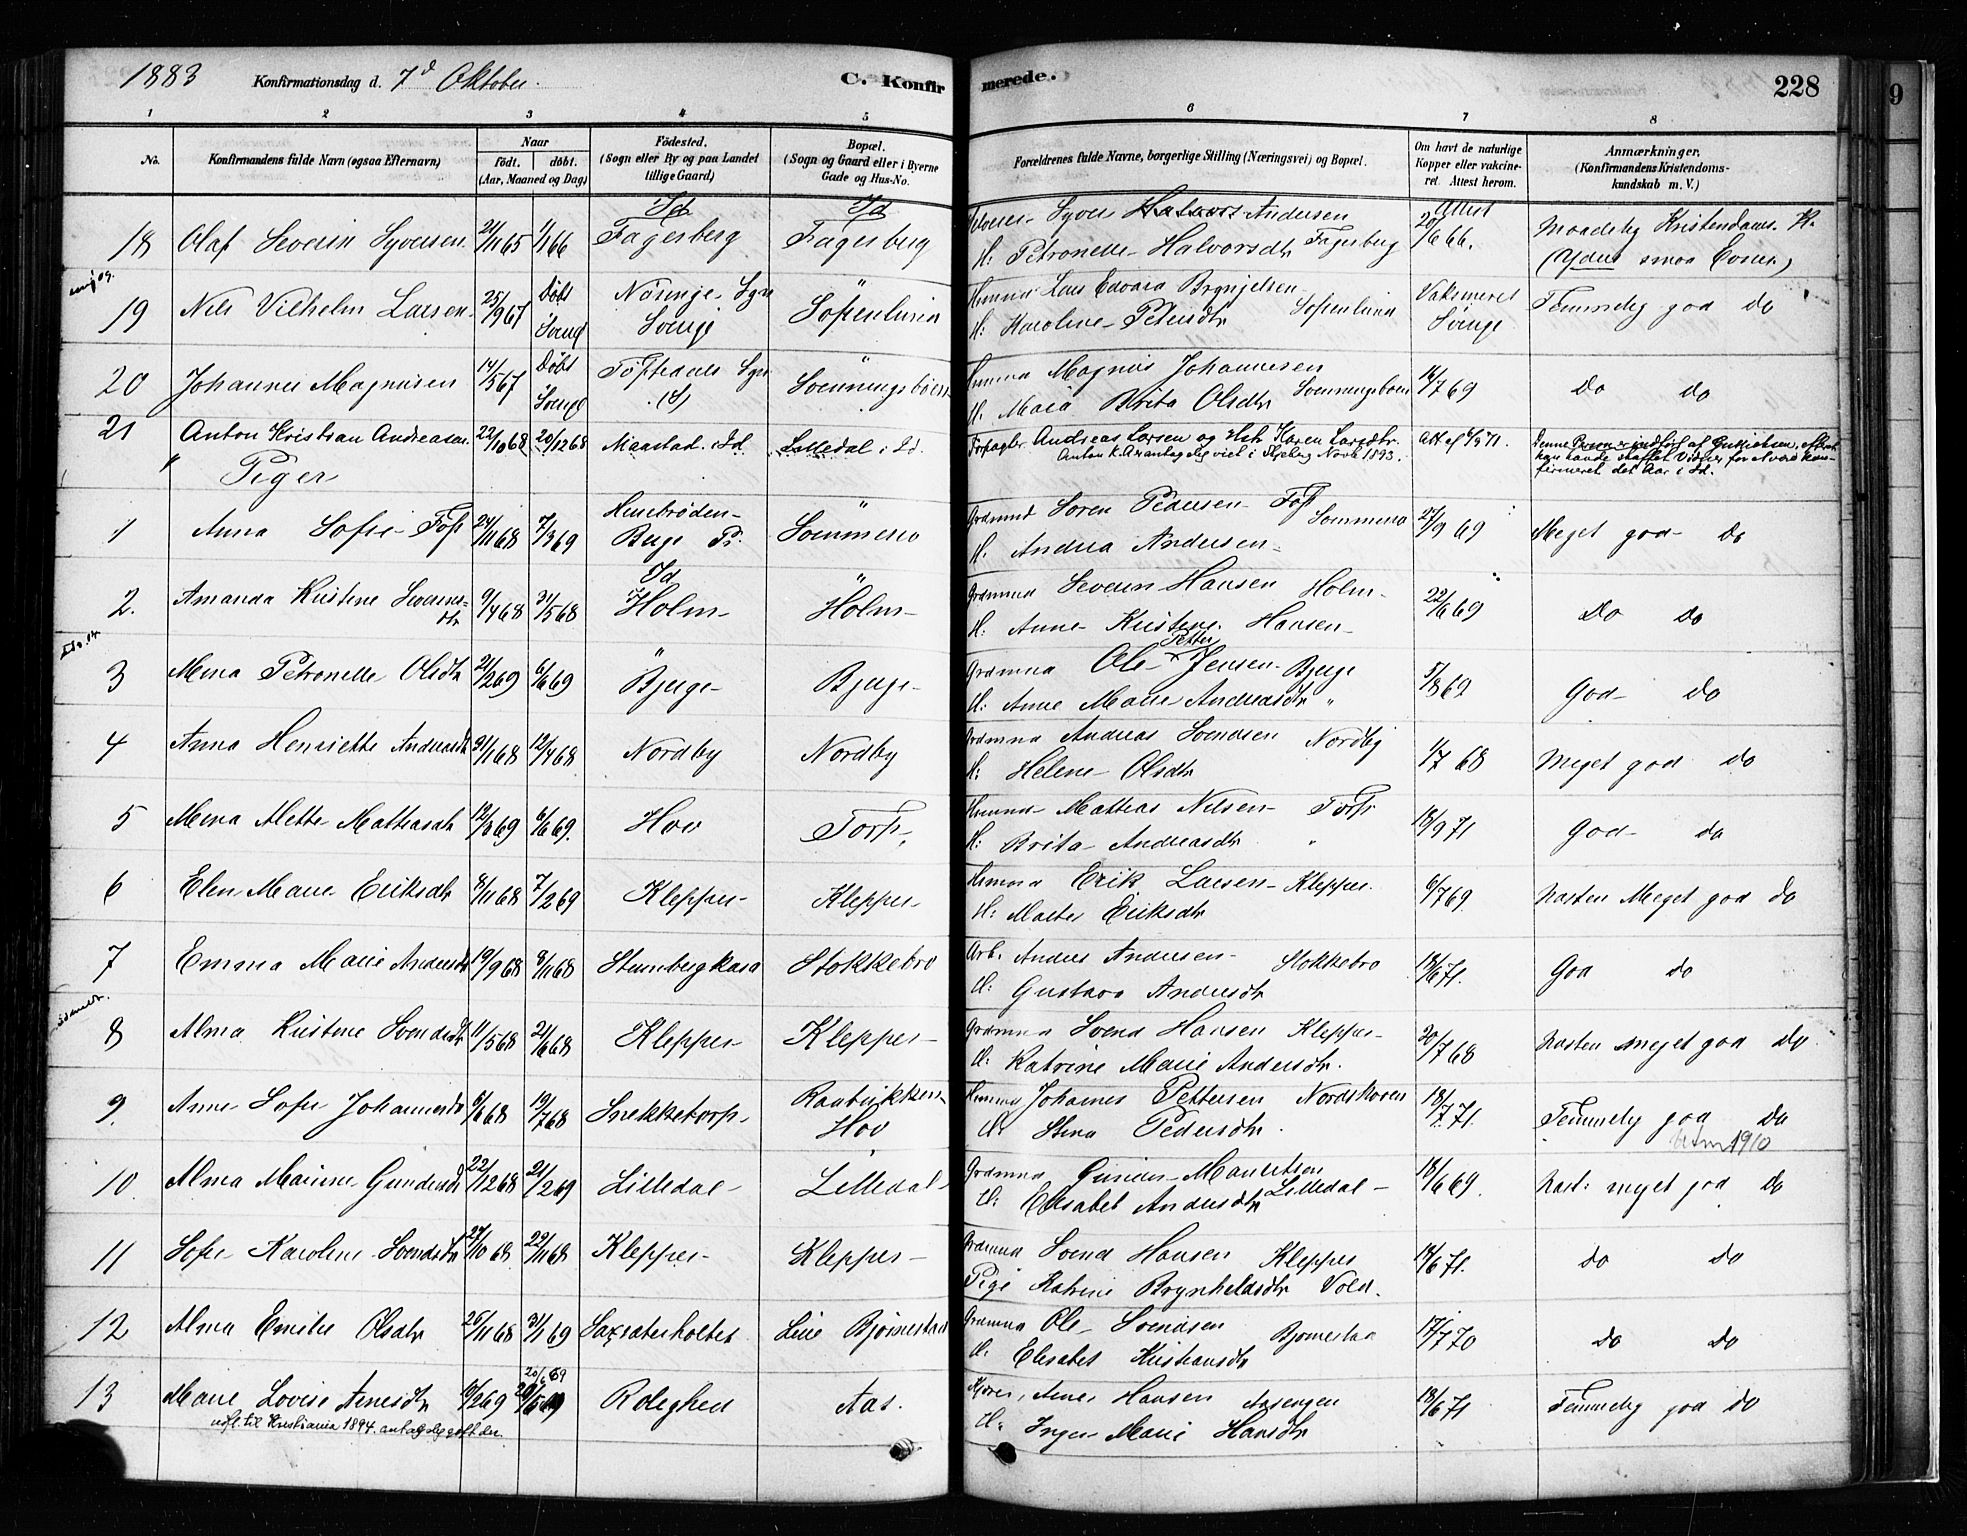 1883 Konfirmationsdag d. 7d Oktober. C. Konfirmerede. 228
1 2 3 4 5 6 7 8
No. Konfirmandens fulde Navn (ogsaa Efternavn) Naar födt. döbt. (Aar, Maaned og Dag) Födested. (Sogn eller By og paa Landet tillige Gaard) Bopæl. (Sogn og Gaard eller i Byerne Gade og Hus-No. Forældrenes fulde Navne, borgerlige Stilling (Næringsvei) og Bopæl. Om havt de naturlige Kopper eller vakcineret. Attest herom. Anmærkninger, (Konfirmandens Kristendomskundskab m. V.)
Id Id Attest
18 Olaf Severin Syversen 21/11 65 1/1 66 Fagerberg Fagerberg Syver Andersen 20/6 66. Maadelig Kristendoms K.
H: Petronelle Halvorsdtr Fagerberg (Ydest smaa Evner)
19 Nils Vilhelm Larsen 25/9 67 Döbt Nösinge Sgn Sofienlund Lars Edvard Brynjelsen
H: Karoline Petersdtr Sofienlund Temmelig god do
20 Johannes Magnusen 14/5 67 Döbt Svenningsböen Magnus Johannesen
H. Maia Brita Olsdtr Svenningsböen 16/7 69 do do
21 Anton Kristian Andreasen 22/10 68 20/12 68 Maastad i Id. Lilledal i Id. Andreas Larsen og Hst Karen Larsdtr.
Anton K. A. antagelig viet i Skjeberg Novb 1893.
Piger
1 Anna Sofie Torp 24/11 68 7/3 69 Henebröden Berge Pr. Sommero Grdmnd Sören Pedersen Torp Sommero 27/9 69 Meget god do
H. Andrea Andersen
Id
2. Amanda Kristine Severinsdtr 9/4 68 31/5 68 Holm Holm Grdmnd Severin Hansen Holm 22/6 69 do do
H: Anne Kristine Hansen
3 Mina Petronelle Olsdtr 21/2 69 6/6 69 Bjerge Bjerge Grdmnd Ole Petter Jensen Bjerge 5/8 69 God do
H: Anne Marie Andreasdtr "
4 Anna Henriette Andreasdtr 31/1 68 12/4 68 Nordby Nordby Grdmnd Andreas Svendsen Nordby 1/7 68 Meget god do
H: Helene Olsdtr
5 Mina Alette Mattiasdtr 12/3 69 6/6 69. Hov Torp Mattias Nilsen Torp 18/9 71 God do
H: Brita Andreasdtr "
6 Elen Marie Eriksdtr 8/11 68 7/2 69 Klepper Klepper Erik Larsen Klepper 6/7 69. Næsten Meget god do
H: Marte Eriksdtr
7 Emma Marie Andersdtr 19/9 68 8/11 68 Stumbergkasa Stokkebro Arb. Anders Andersen Stokkebro 18/6 71. God do
H: Gustava Andersdtr
8 Alma Kristine Svendsdtr 11/5 68 21/6 68 Klepper Klepper Grdmnd Svend Hansen Klepper 20/7 68 Næsten meget god do
H: Katrine Marie Andersdtr.
9. Anne Sofie Johannesdtr 8/6 68 19/7 68 Snekketorp Hov Johannes Pettersen Nordskoven 18/7 71. Temmelig god do
H: Stina Pedersdtr. 1910
10. Alma Marine Gundersdtr 22/12 68 21/2 69 Lilledal Lilledal Grdmnd Gunder Mauritsen 18/6 69. Næst: meget god do
H: Elisabet Andersdtr Lilledal
11 Sofie Karoline Svendsdtr 27/10 68 29/11 68 Klepper Klepper Grdmnd Svend Hansen Klepper 14/6 71. do do
Pige Katrine Brynhildsdtr Vold.
12 Alma Emilie Olsdtr 26/11 68 31/1 69 Saxraterholtet Lille Björnestad Grdmnd Ole Svendsen Björnestad 17/7 70 do do
H. Elisabet Kristiansdtr
20/6 69
13 Marie Lovise Arnesdtr 8/2 69 Roleghed Aas. Arne Hansen Aasengen 18/6 71 Temmelig god do
udfl. til Kristiania 1894. antagelig gift der. H: Inger Marie Hansdtr